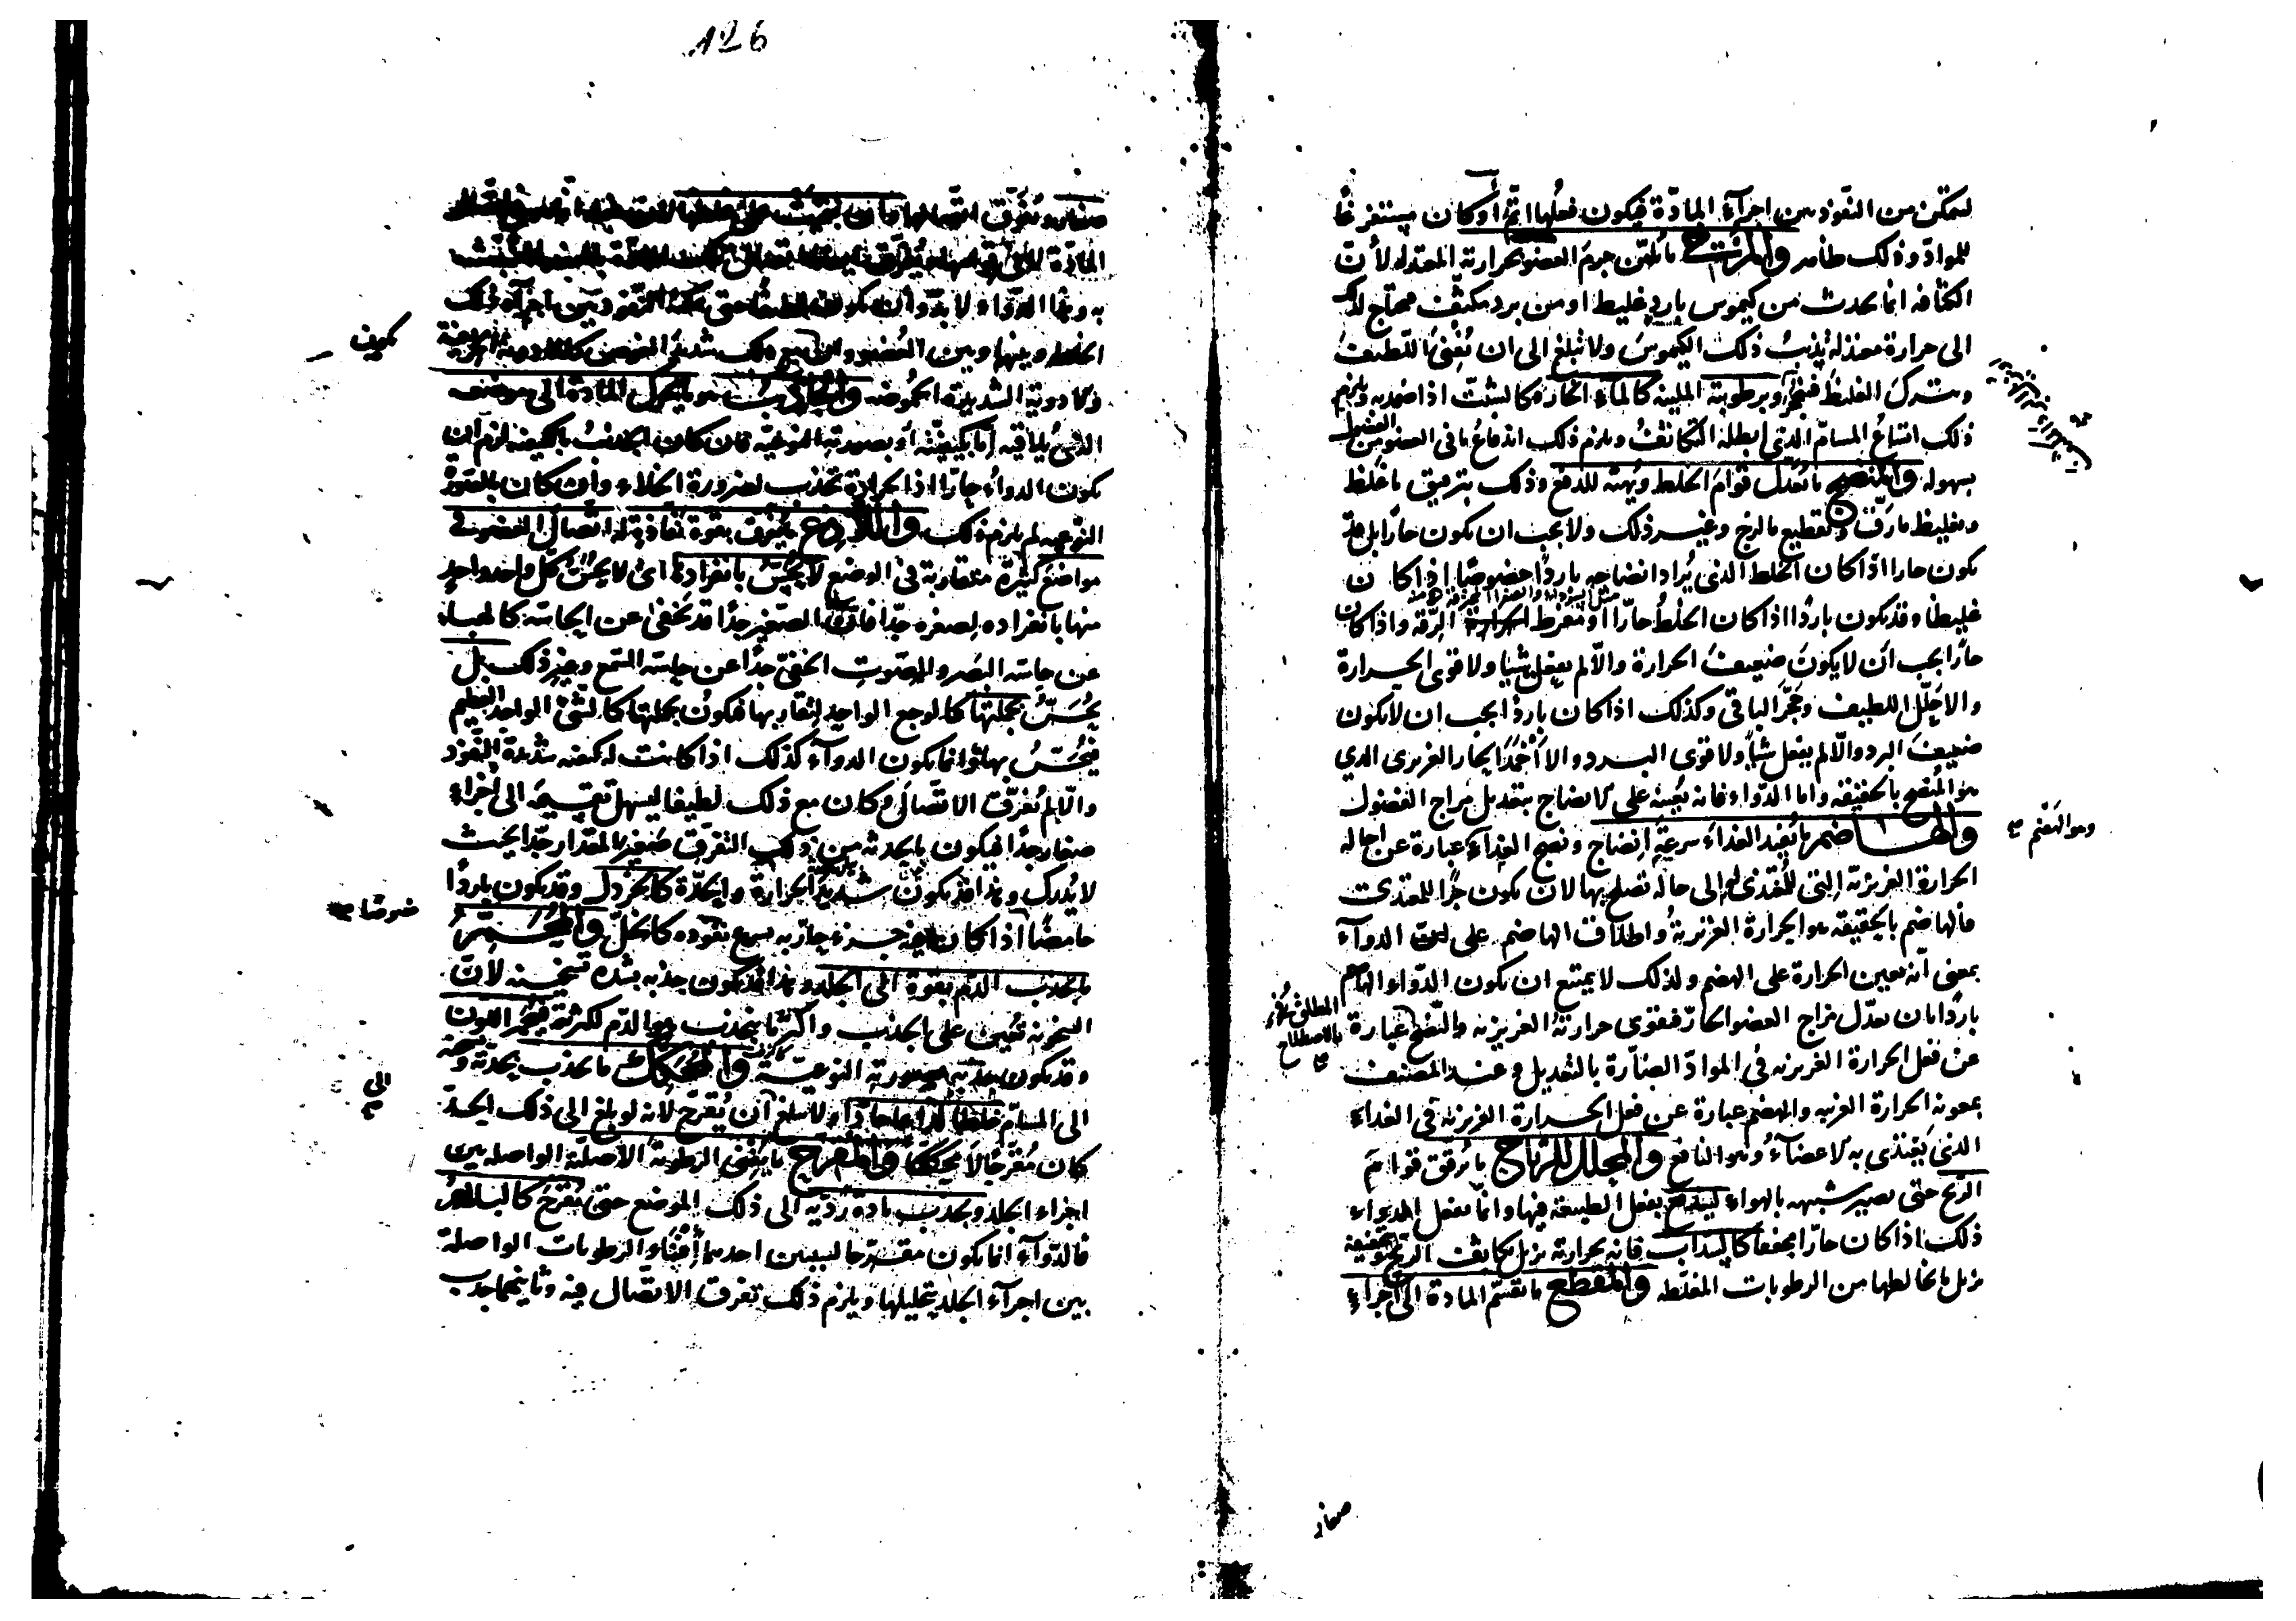 ليمكن من النفوذ بين اجزآء المادّة فيكون فعلها اتمّ او كان مستفرغًا
للموادّ وذلك ظاهر والمرخى ما يُليّن جرم العضو بحرارته المعتدلة لأنّ
الكثافة انما يحدث من كيموس بارد غليظ او من برد مكثّف فيحتاج لذلك
الى حرارة معتدلة يُذيبُ ذلك الكيموسَ ولا تبلغ الى ان تُفنىَ اللطيفَ
ويترك الغليظ فيتحجّر وبرطوبته المليّنة كالماء الحارّ وكالشبت اذا ضمد به ويلزم
ذلك اتساعُ المسامّ الذى ابطله التكاثف ويلزم ذلك اندفاعُ ما فى العضو من الفضول
بسهولة والمنضج ما يُعَدّل قوامَ الخلط ويُهيّئه للدفع وذلك بترقيق ما غلظ
وتغليظ ما رَقّ وتقطيع ما لزج وغير ذلك ولا يجب ان يكون حارًا بل قد
يكون حارا اذا كان الخلط الذى يُراد انضاجه باردًا خصوصًا اذا كان
غليظًا وقد يكون باردًا اذا كان الخلطُ حارّا او مفرط الرّقة واذا كان
حارًا يجب ان لا يكونَ ضعيفَ الحرارة والّا لم يفعل شيئًا ولا قوى الحرارة
والا حَلّل اللطيف وحَجّر الباقى وكذلك اذا كان باردًا يجب ان لا يكون
ضعيفَ البرد والّا لم يفعل شيئًا ولا قوى البرد والا اَخْمَدَ الحار الغريزى الذى
هو المُنضج بالحقيقة واما الدّواء فانه يُعينه على الانضاج بتعديل مزاج الفضول
والهاضم ما يُفيد الغذاءَ سرعةَ انضاج ونضج الغذاء عبارة عن احالة
وهو الهَضم صح
الحرارة الغريزية التى للمُغتذى له الى حالة تصلح بها لان يكون جزءًا للمغتذى
فالهاضم بالحقيقة هو الحرارة الغريزيةُ واطلاق الهاضم على الدوآء
بمعنى أنّه يعين الحرارة على الهضم ولذلك لا يمتنع ان يكون الدّواء الهاضم
باردًا بان يعدّل مزاج العضو الحارّ فيقوى حرارتَهُ الغريزية والنّضج عبارة
عن فعل الحرارة الغريزية فى الموادّ الضارّة بالتعديل وعند المصنف
بمعونة الحرارة الغريبة والهضم عبارة عن فعل الحرارة الغريزية فى الغذاء
الذى يَغتذى به الاعضآءُ وهو النافع والمحلل للرياح ما يُرقق قوامَ
الرّيح حتى يصير شبيهة بالهواء ليندفع بفعل الطبيعة فيها وانّما يفعل الدواء
ذلك اذا كان حارّا مجففا كالسذاب فانه بحرارته يزيل تكاثف الريح وبتجفيفه
يزيل ما يخالطها من الرطوبات المغلّظة والمقطع ما يقسّم المادة الى اجزاء
صغار
126
به وهذا الدّواء لا بدّ وأن يكون لطيفًا حتى يمكنه النفوذ بين اجزآء ذلك
الخلط وبينها وبين العُضو وان يكون مع ذلك شديدَ الغوص كالادوية الحرّيفة
وكالادوية الشديدة الحموضة والجاذب هو ما يحرّك المادة الى موضعه
الذى يُلاقيه إمّا بكيفيّته أو بصورته النوعيّة فان كان الجذبُ بالكيفية لزم أن
يكون الدواءُ حارّا اذ الحرارة تجذب لضرورة الخلاء وان كان بالصّورة
النّوعية لم يلزم ذلك واللاذع ما يُفرّق بقوة نفّاذة له اتّصالَ العضو فى
مواضعَ كثيرة متقاربة فى الوضع لا يُحَسّ بانفرادها اىْ لا يُحَسُّ كلّ واحد واحد
منها بانفراده لصغره جدّا فان الصّغير جدًا قد يَخفىٰ عن الحاسّة كالهباء
عن حاسّة البصر والصّوت الخفىّ جدًا عن حاسّة السّمع وغير ذلك بل
يُحَسُّ بجملتها كالوجع الواحد لتقاربها فيكون بجملتها كالشّئ الواحد العظيم
فيُحَسّ بها وانما يكون الدوآء كذلك اذا كانت له كيفيّة شديدة النّفوذ
والّا لم يُفرّق الاتّصالَ وكان مع ذلك لطيفا ليسهل تقسيمُه الى أجزاء
صغار جدًا فيكون ما يحدثه من ذلك التفرّق صَغيرَ المقدار جدّا بحيث
لا يُدرك وهذا قد يكون شديدَ الحرارة والحدّة كالخردل وقد يكون باردًا
حامضًا اذا كان فيه جزء حارّ به يسرع نفوذه كالخلّ والمُحَمِّرُ
ما يجذب الدّم بقوة الى الجلد وهذا قد يكون جذبه بشدّة تسخينه لانّ
السخونة تُعين على الجذب واكثر ما ينجذب هو الدّم لكثرته فيحمّر اللون
وقد يكون جذبه بصورته النوعيّة والمُحكّك ما يجذب بحدّته وتسخينه
الى المسامّ خلطًا لذّاعا حادّا ولا يبلغ أن يُقرّح لانه لو بلغ الى ذلك الحدّ
كان مُقرّحًا لا مُحكّكا والمقرّح ما يُفنى الرّطوبة الأصليّة الواصلة بين
اجزاء الجلد ويجذب مادة رديّة الى ذلك الموضع حتى يُقرّحَ كالبلاذر
فالدّوآء انما يكون مقرّحا لسببين احدهما إفنآء الرطوبات الواصلة
بين اجزآء الجلد بتحليلها ويلزم ذلك تفرق الاتّصال فيه وثانيهما جذب